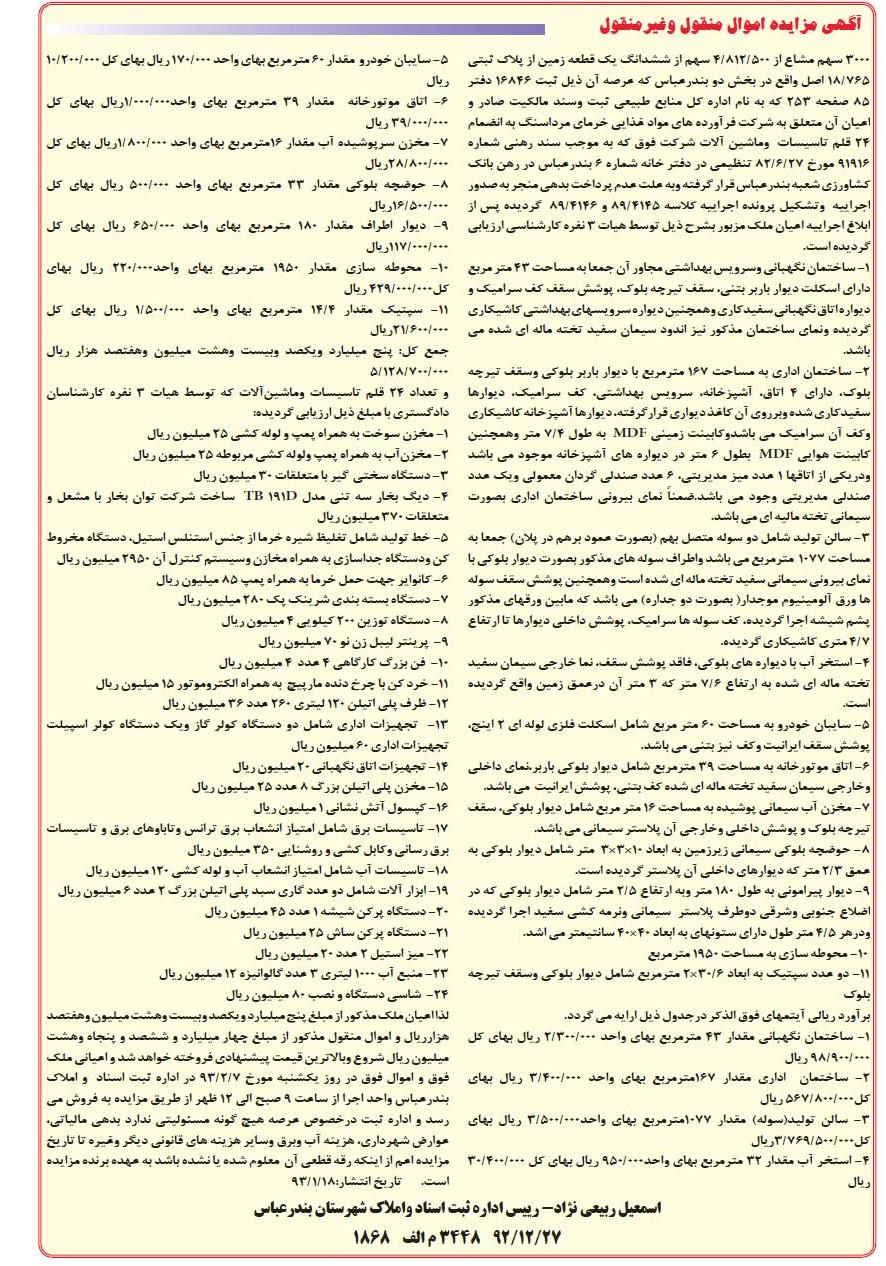 آگهی مزایده اموال منقول وغیرمنقول
۳۰۰۰ سهم مشاع از ۴/۸۱۲/۵۰۰ سهم از ششدانگ یک قطعه زمین از پلاک ثبتی
۱۸/۷۶۵ اصل واقع در بخش دو بندرعباس که عرصه آن ذیل ثبت ۱۶۸۴۶ دفتر
۸۵ صفحه ۲۵۳ که به نام اداره کل منابع طبیعی ثبت وسند مالکیت صادر و
اعیان آن متعلق به شرکت فرآورده های مواد غذایی خرمای مرداسنگ به انضمام
۲۴ قلم تاسیسات وماشین آلات شرکت فوق که به موجب سند رهنی شماره
۹۱۹۱۶ مورخ ۸۲/۶/۲۷ تنظیمی در دفتر خانه شماره ۶ بندرعباس در رهن بانک
کشاورزی شعبه بندرعباس قرار گرفته وبه علت عدم پرداخت بدهی منجر به صدور
اجراییه وتشکیل پرونده اجراییه کلاسه ۸۹/۴۱۴۵ و ۸۹/۴۱۴۶ گردیده پس از
ابلاغ اجراییه اعیان ملک مزبور بشرح ذیل توسط هیات ۳ نفره کارشناسی ارزیابی
گردیده است.
۱- ساختمان نگهبانی وسرویس بهداشتی مجاور آن جمعا به مساحت ۴۳ متر مربع
دارای اسکلت دیوار باربر بتنی، سقف تیرچه بلوک، پوشش سقف کف سرامیک و
دیواره اتاق نگهبانی سفیدکاری وهمچنین دیواره سرویسهای بهداشتی کاشیکاری
گردیده ونمای ساختمان مذکور نیز اندود سیمان سفید تخته ماله ای شده می
باشد.
۲- ساختمان اداری به مساحت ۱۶۷ مترمربع با دیوار باربر بلوکی وسقف تیرچه
بلوک، دارای ۴ اتاق، آشپزخانه، سرویس بهداشتی، کف سرامیک، دیوارها
سفیدکاری شده وبرروی آن کاغذ دیواری قرار گرفته، دیوارها آشپزخانه کاشیکاری
وکف آن سرامیک می باشدوکابینت زمینی MDF به طول ۷/۴ متر وهمچنین
کابینت هوایی MDF بطول ۶ متر در دیواره های آشپزخانه موجود می باشد
ودریکی از اتاقها ۱ عدد میز مدیریتی، ۶ عدد صندلی گردان معمولی ویک عدد
صندلی مدیریتی وجود می باشد.ضمناً نمای بیرونی ساختمان اداری بصورت
سیمانی تخته مالیه ای می باشد.
۳- سالن تولید شامل دو سوله متصل بهم (بصورت عمود برهم در پلان) جمعا به
مساحت ۱۰۷۷ مترمربع می باشد واطراف سوله های مذکور بصورت دیوار بلوکی با
نمای بیرونی سیمانی سفید تخته ماله ای شده است وهمچنین پوشش سقف سوله
ها ورق آلومینیوم موجدار( بصورت دو جداره) می باشد که مابین ورقهای مذکور
پشم شیشه اجرا گردیده، کف سوله ها سرامیک، پوشش داخلی دیوارها تا ارتفاع
۴/۷ متری کاشیکاری گردیده.
۴- استخر آب با دیواره های بلوکی، فاقد پوشش سقف، نما خارجی سیمان سفید
تخته ماله ای شده به ارتفاع ۷/۶ متر که ۳ متر آن درعمق زمین واقع گردیده
است.
۵- سایبان خودرو به مساحت ۶۰ متر مربع شامل اسکلت فلزی لوله ای ۲ اینچ،
پوشش سقف ایرانیت وکف نیز بتنی می باشد.
۶- اتاق موتورخانه به مساحت ۳۹ مترمربع شامل دیوار بلوکی باربر،نمای داخلی
وخارجی سیمان سفید تخته ماله ای شده کف بتنی، پوشش ایرانیت می باشد.
۷- مخزن آب سیمانی پوشیده به مساحت ۱۶ متر مربع شامل دیوار بلوکی، سقف
تیرچه بلوک و پوشش داخلی وخارجی آن پلاستر سیمانی می باشد.
۸- حوضچه بلوکی سیمانی زیرزمین به ابعاد ۱۰×۳×۳ متر شامل دیوار بلوکی به
عمق ۲/۳ متر که دیوارهای داخلی آن پلاستر گردیده است.
۹- دیوار پیرامونی به طول ۱۸۰ متر وبه ارتفاع ۲/۵ متر شامل دیوار بلوکی که در
اضلاع جنوبی وشرقی دوطرف پلاستر سیمانی ونرمه کشی سفید اجرا گردیده
ودرهر ۴/۵ متر طول دارای ستونهای به ابعاد ۴۰×۴۰ سانتیمتر می اشد.
۱۰- محوطه سازی به مساحت ۱۹۵۰ مترمربع
۱۱- دو عدد سپتیک به ابعاد ۳۰/۶×۲ مترمربع شامل دیوار بلوکی وسقف تیرچه
بلوک
برآورد ریالی آیتمهای فوق الذکر درجدول ذیل ارایه می گردد.
۱- ساختمان نگهبانی مقدار ۴۳ مترمربع بهای واحد ۲/۳۰۰/۰۰۰ ریال بهای کل
۹۸/۹۰۰/۰۰۰ ریال
۲- ساختمان اداری مقدار ۱۶۷مترمربع بهای واحد ۳/۴۰۰/۰۰۰ ریال بهای
کل۵۶۷/۸۰۰/۰۰۰ ریال
۳- سالن تولید(سوله) مقدار ۱۰۷۷مترمربع بهای واحد۳/۵۰۰/۰۰۰ ریال بهای
کل۳/۷۶۹/۵۰۰/۰۰۰ریال
۴- استخر آب مقدار ۳۲ مترمربع بهای واحد۹۵۰/۰۰۰ ریال بهای کل ۳۰/۴۰۰/۰۰۰
ریال
۵- سایبان خودرو مقدار ۶۰ مترمربع بهای واحد ۱۷۰/۰۰۰ ریال بهای کل ۱۰/۲۰۰/۰۰۰
ریال
۶- اتاق موتورخانه مقدار ۳۹ مترمربع بهای واحد۱/۰۰۰/۰۰۰ریال بهای کل
۳۹/۰۰۰/۰۰۰ ریال
۷- مخزن سرپوشیده آب مقدار ۱۶مترمربع بهای واحد ۱/۸۰۰/۰۰۰ریال بهای کل
۲۸/۸۰۰/۰۰۰ریال
۸- حوضچه بلوکی مقدار ۳۳ مترمربع بهای واحد ۵۰۰/۰۰۰ ریال بهای کل
۱۶/۵۰۰/۰۰۰ریال
۹- دیوار اطراف مقدار ۱۸۰ مترمربع بهای واحد ۶۵۰/۰۰۰ ریال بهای کل
۱۱۷/۰۰۰/۰۰۰ریال
۱۰- محوطه سازی مقدار ۱۹۵۰ مترمربع بهای واحد۲۲۰/۰۰۰ ریال بهای
کل۴۲۹/۰۰۰/۰۰۰ ریال
۱۱- سپتیک مقدار ۱۴/۴ مترمربع بهای واحد ۱/۵۰۰/۰۰۰ ریال بهای کل
۲۱/۶۰۰/۰۰۰ریال
جمع کل: پنج میلیارد ویکصد وبیست وهشت میلیون وهفتصد هزار ریال
۵/۱۲۸/۷۰۰/۰۰۰
و تعداد ۲۴ قلم تاسیسات وماشین‌آلات که توسط هیات ۳ نفره کارشناسان
دادگستری با مبلغ ذیل ارزیابی گردیده:
۱- مخزن سوخت به همراه پمپ و لوله کشی ۲۵ میلیون ریال
۲- مخزن‌آب به همراه پمپ ولوله کشی مربوطه ۲۵ میلیون ریال
۳- دستگاه سختی گیر با متعلقات ۳۰ میلیون ریال
۴- دیگ بخار سه تنی مدل TB ۱۹۱D ساخت شرکت توان بخار با مشعل و
متعلقات ۳۷۰ میلیون ریال
۵- خط تولید شامل تغلیظ شیره خرما از جنس استنلس استیل، دستگاه مخروط
کن ودستگاه جداسازی به همراه مخازن وسیستم کنترل آن ۲۹۵۰ میلیون ریال
۶- کانوایر جهت حمل خرما به همراه پمپ ۸۵ میلیون ریال
۷- دستگاه بسته بندی شرینک پک ۲۸۰ میلیون ریال
۸- دستگاه توزین ۲۰۰ کیلویی ۴ میلیون ریال
۹- پرینتر لیبل زن نو ۷۰ میلیون ریال
۱۰- فن بزرگ کارگاهی ۴ عدد ۴ میلیون ریال
۱۱- خرد کن با چرخ دنده مارپیچ به همراه الکتروموتور ۱۵ میلیون ریال
۱۲- ظرف پلی اتیلن ۱۲۰ لیتری ۲۶۰ عدد ۳۶ میلیون ریال
۱۳- تجهیزات اداری شامل دو دستگاه کولر گاز ویک دستگاه کولر اسپیلت
تجهیزات اداری ۶۰ میلیون ریال
۱۴- تجهیزات اتاق نگهبانی ۲۰ میلیون ریال
۱۵- مخزن پلی اتیلن بزرگ ۸ عدد ۲۵ میلیون ریال
۱۶- کپسول آتش نشانی ۱ میلیون ریال
۱۷- تاسیسات برق شامل امتیاز انشعاب برق ترانس وتاباوهای برق و تاسیسات
برق رسانی وکابل کشی و روشنایی ۳۵۰ میلیون ریال
۱۸- تاسیسات آب شامل امتیاز انشعاب آب و لوله کشی ۱۲۰ میلیون ریال
۱۹- ابزار آلات شامل دو عدد گاری سبد پلی اتیلن بزرگ ۲ عدد ۶ میلیون ریال
۲۰- دستگاه پرکن شیشه ۱ عدد ۴۵ میلیون ریال
۲۱- دستگاه پرکن ساش ۲۵ میلیون ریال
۲۲- میز استیل ۲ عدد ۲۰ میلیون ریال
۲۳- منبع آب ۱۰۰۰ لیتری ۳ عدد گالوانیزه ۱۲ میلیون ریال
۲۴- شاسی دستگاه و نصب ۸۰ میلیون ریال
لذا اعیان ملک مذکور از مبلغ پنج میلیارد ویکصدوبیست وهشت میلیون وهفتصد
هزارریال و اموال منقول مذکور از مبلغ چهار میلیارد و ششصد و پنجاه وهشت
میلیون ریال شروع وبالاترین قیمت پیشنهادی فروخته خواهد شد و اعیانی ملک
فوق و اموال فوق در روز یکشنبه مورخ ۹۳/۲/۷ در اداره ثبت اسناد و املاک
بندرعباس واحد اجرا از ساعت ۹ صبح الی ۱۲ ظهر از طریق مزایده به فروش می
رسد و اداره ثبت درخصوص عرصه هیچ گونه مسئولیتی ندارد بدهی مالیاتی،
عوارض شهرداری، هزینه آب وبرق وسایر هزینه های قانونی دیگر وغیره تا تاریخ
مزایده اعم از اینکه رقه قطعی آن معلوم شده یا نشده باشد به عهده برنده مزایده
است. تاریخ انتشار:۹۳/۱/۱۸
اسمعیل ربیعی نژاد- رییس اداره ثبت اسناد واملاک شهرستان بندرعباس
۹۲/۱۲/۲۷ ۳۴۴۸ م الف ۱۸۶۸